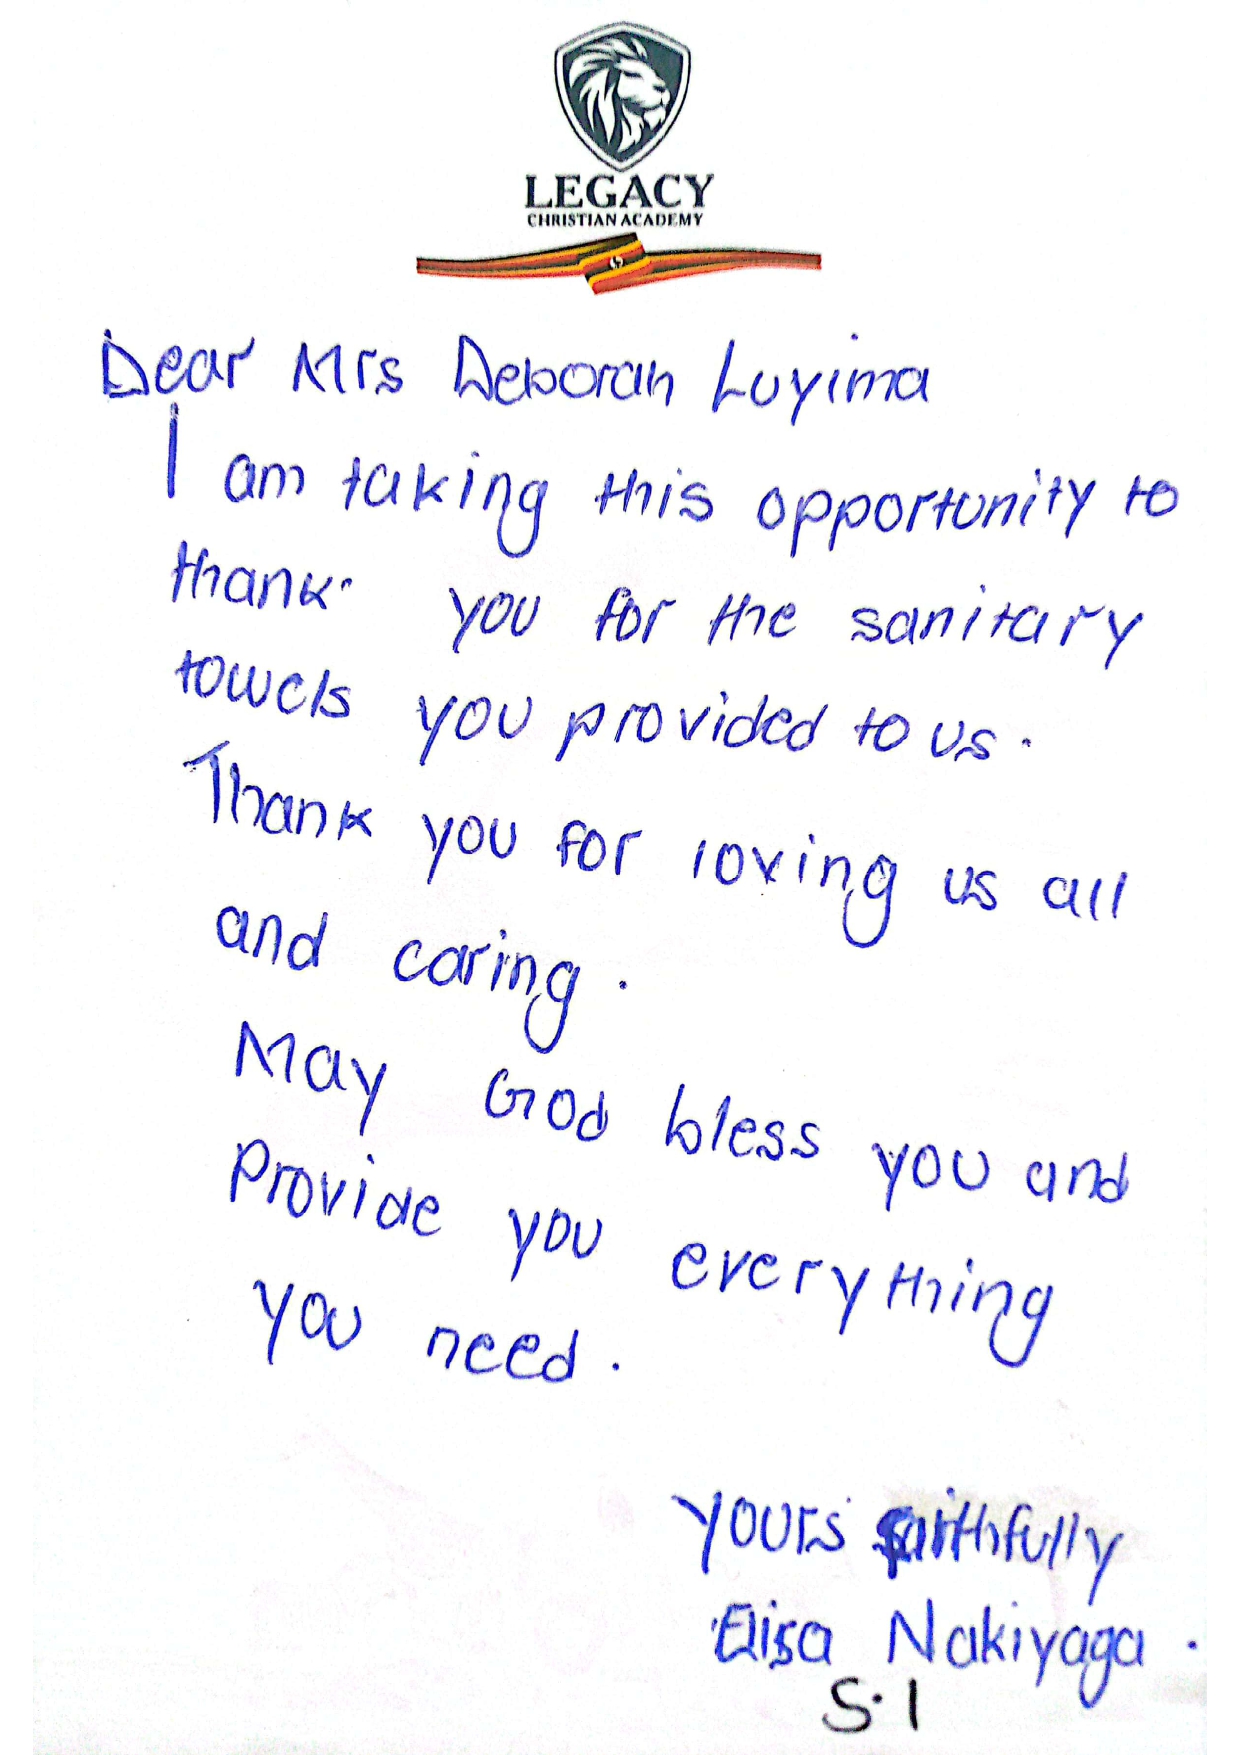 LEGACY
CHRISTIAN ACADEMY
Dear Mrs Deborah Luyima
I am taking this opportunity to
thank you for the sanitary
towels you provided to us.
Thank you for loving us all
and caring.
May God bless you and
Provide you everything
you need.
yours faithfully
Elisa Nakiyaga.
S.1